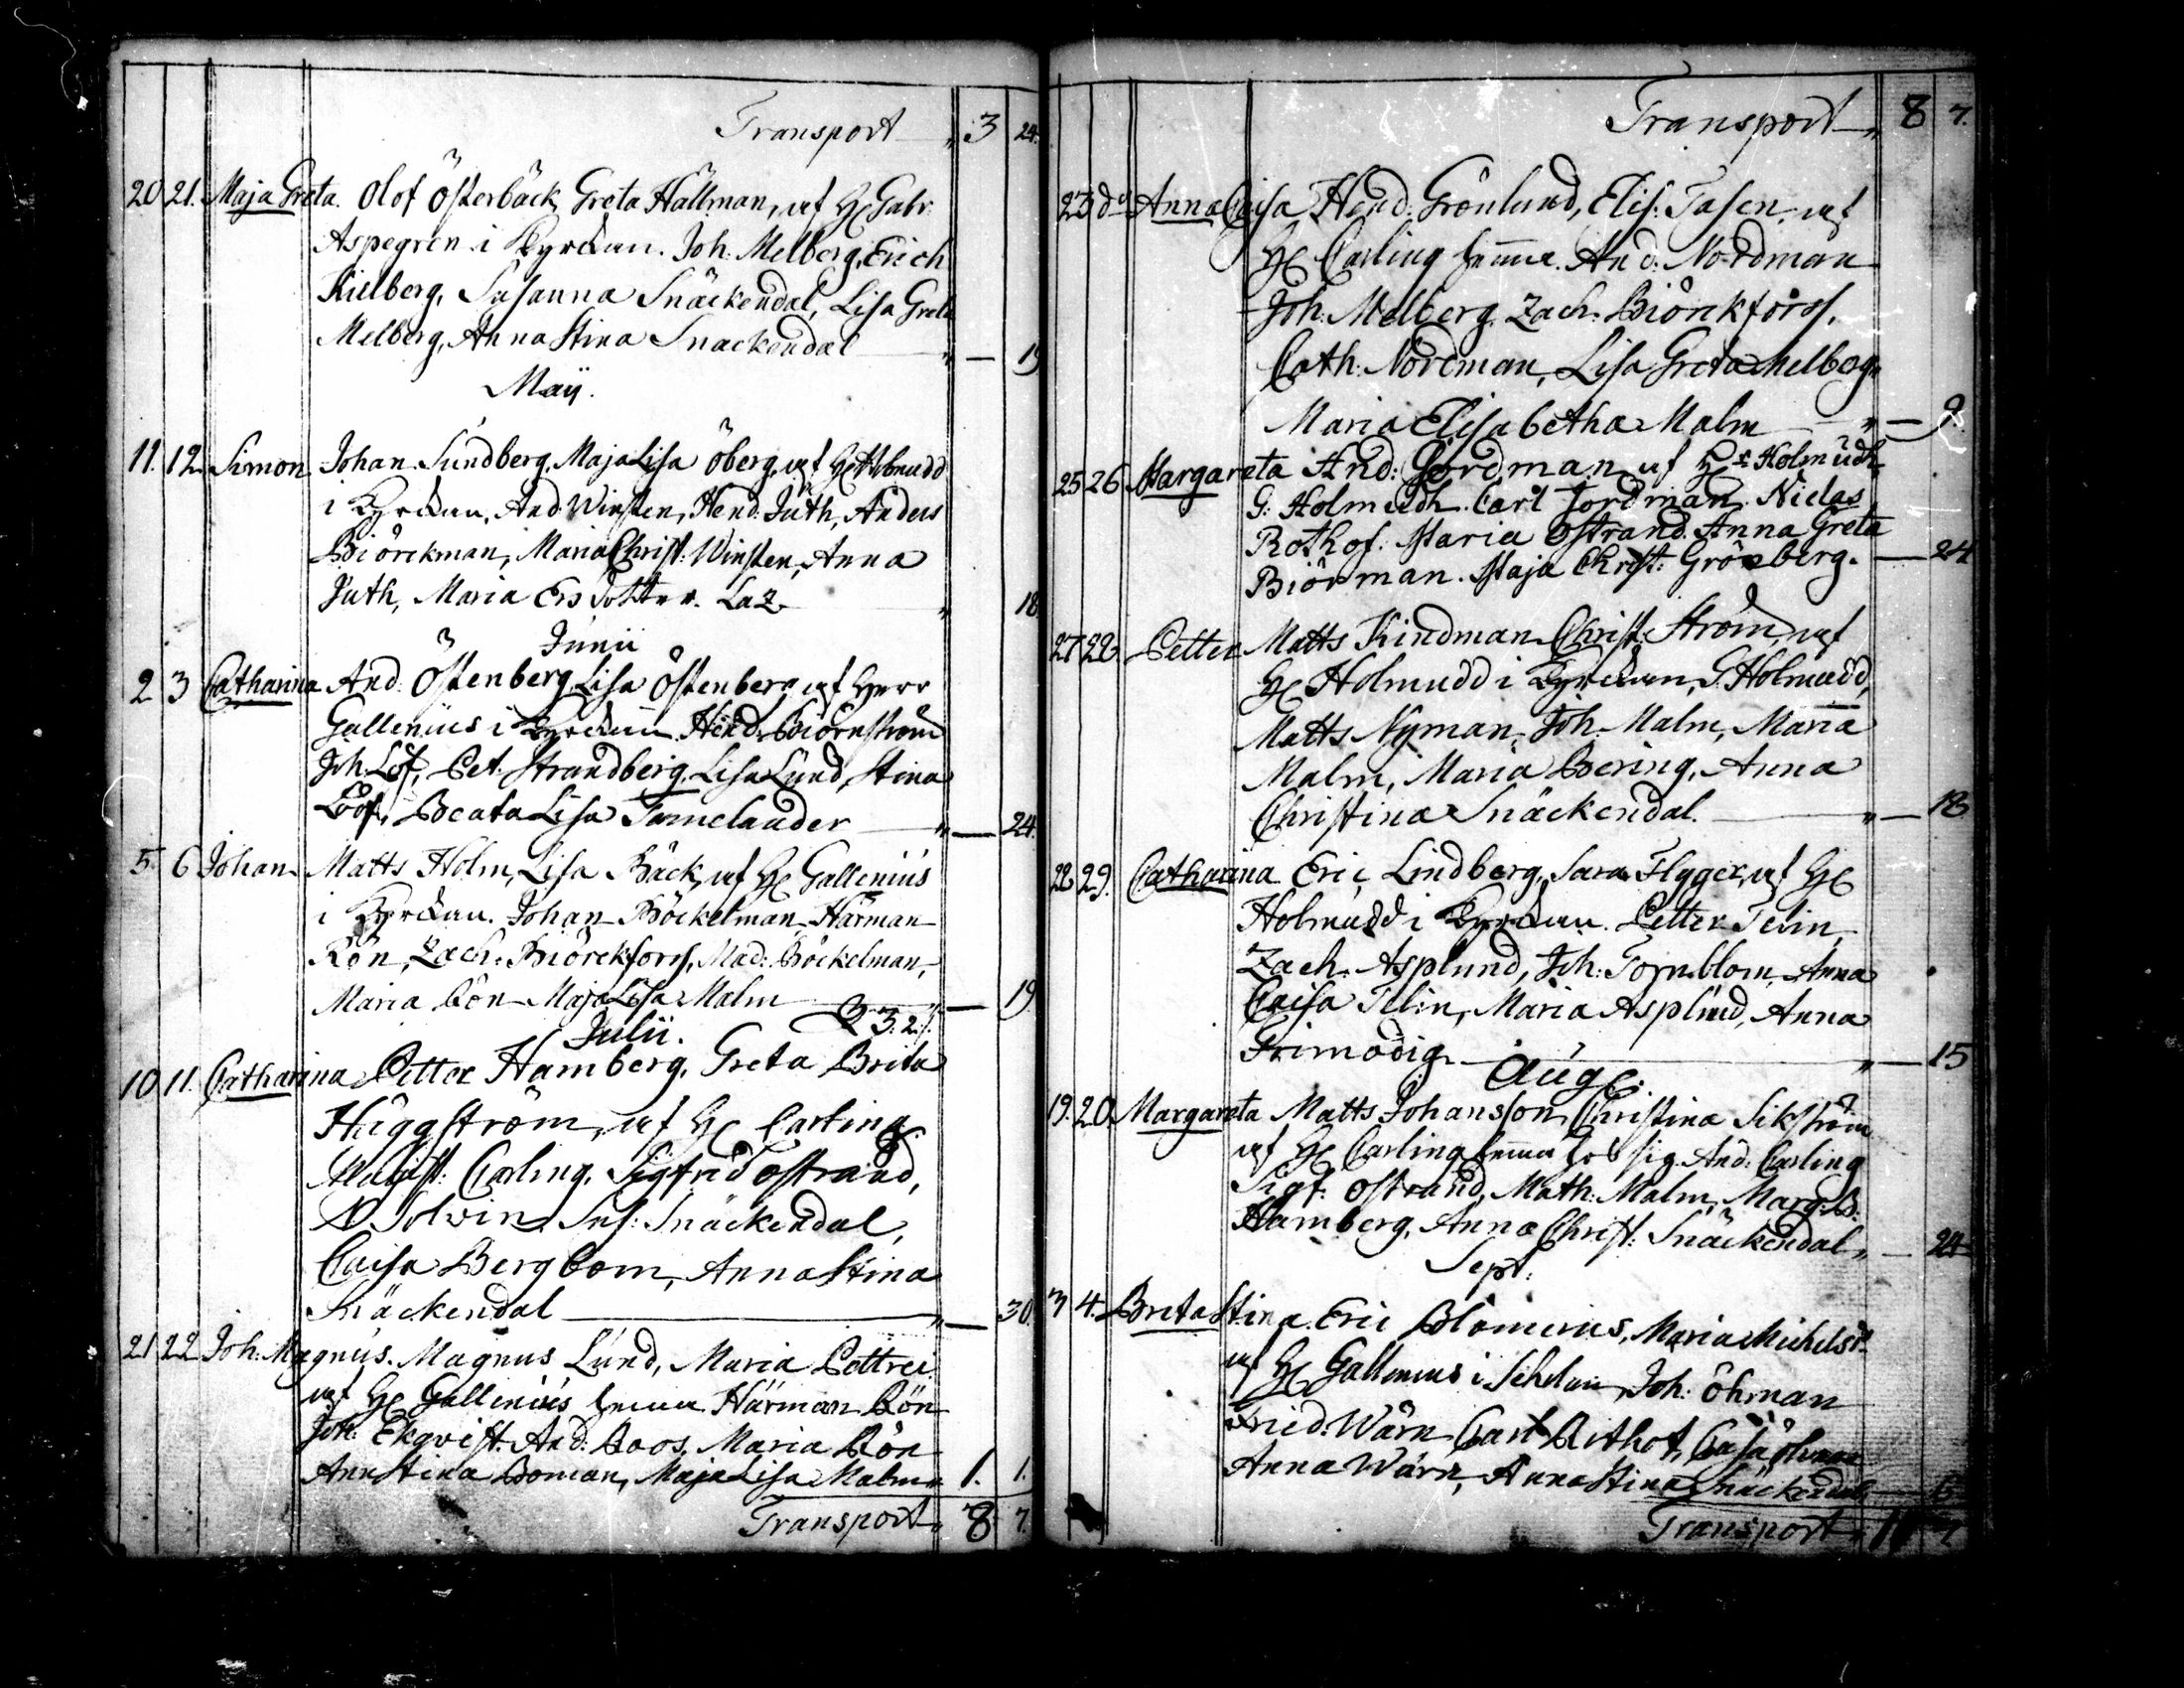 Transport „ 3 24.
20 21. Maja Greta. Olof Österbäck, Greta Hällman, af H: Gabr:
Aspegren i Kyrckan. Joh: Melberg, Erich
Kielberg, Susanna Snäckendal, Lisa Greta
Melberg, Anna Stina Snackendal „ — 19
Maÿ.
11. 12. Simon. Johan Sundberg, Maja Lisa Öberg, af H: Holmudd
i Kyrckan, And: Winsten, Hend: Juth, Anders
Biörckman, Maria Christ: Winsten, Anna
Juth, Maria Ersdotter. „ 18
Junii
2 3 Catharina And: Östenberg Lisa Östenberg af Herr
Gallenius i Kyrckan Hend: Biörnström
Joh: Löf, Pet: Strandberg, Lisa Lund, Stina
Lööf, Beata Lisa Tamelander „ — 24.
5. 6 Johan Matts Holm, Lisa Bäck, af H: Gallenius
i Kyrckan. Johan Böckelman Härman
Rön, Zach: Biörckforss, Mad: Böckelman,
Maria Rön Maja Lisa Malm — 19
Julii.
10 11. Catharina Petter Hamberg, Greta Brita
Häggström, af H: Carling.
Magist: Carling, Sigfrid Östrand,
N Solvin, Sus: Snäckendal,
Caisa Bergbom, Anna Stina
Snäckendal „ — 30
21 22 Joh: Magnus. Magnus Lund, Maria Pettrei.
af H: Gallenius hemma Härman Rön
Joh: Ekqvist. And: Roos, Maria Rön
Ann Stina Boman, Maja Lisa Malm „ 1. 1.
Transport „ 8 7.
Transport „ 8 7.
23 do Anna Caisa Hend: Grönlund, Elis: Tasen af
H: Carling hemma. And: Nordman
Joh: Melberg, Zach: Biörckforss,
Cath: Nordman, Lisa Greta Melberg,
Maria Elisabetha Malm „ — 9.
25 26 Margareta And: Jordman af H:r Holmudh.
G: Holmudh. Carl Jordman. Niclas
Rothof: Maria Östrand. Anna Greta
Biörman. Maja Christ: Grönberg. — 24
27 28 Petter Matts Kindman Christ: Ström, af
H: Holmudd i Kyrckan, G Holmudd,
Matts Nyman, Joh: Malm, Maria
Malm, Maria Bering, Anna
Christina Snäckendal. „ — 18
28 29. Catharina Eric Lindberg, Sara Flyger, af H:
Holmudd i Kyrckan. Petter Telin,
Zach: Asplund, Joh: Tornblom, Anna
Caisa Telin, Maria Asplund, Anna
Frimodig „ — 15
Aug:
19. 20. Margareta Matts Johansson, Christina Sikström
af H: Carling hemma hos sig. And: Carling
Sigf: Östrand, Math: Malm, Marg: B:
Hamberg, Anna Christ: Snäckendal „ — 24
Sept:
3 4. Brita Stina. Eric Blomerus, Maria Michelsdr
af H: Gallenius i Johan Joh: Öhman
Fried: Wärn Carl Rithof, Caisa Öhman
Anna Wärn, Anna Stina Snäckendal
Transport „ 11